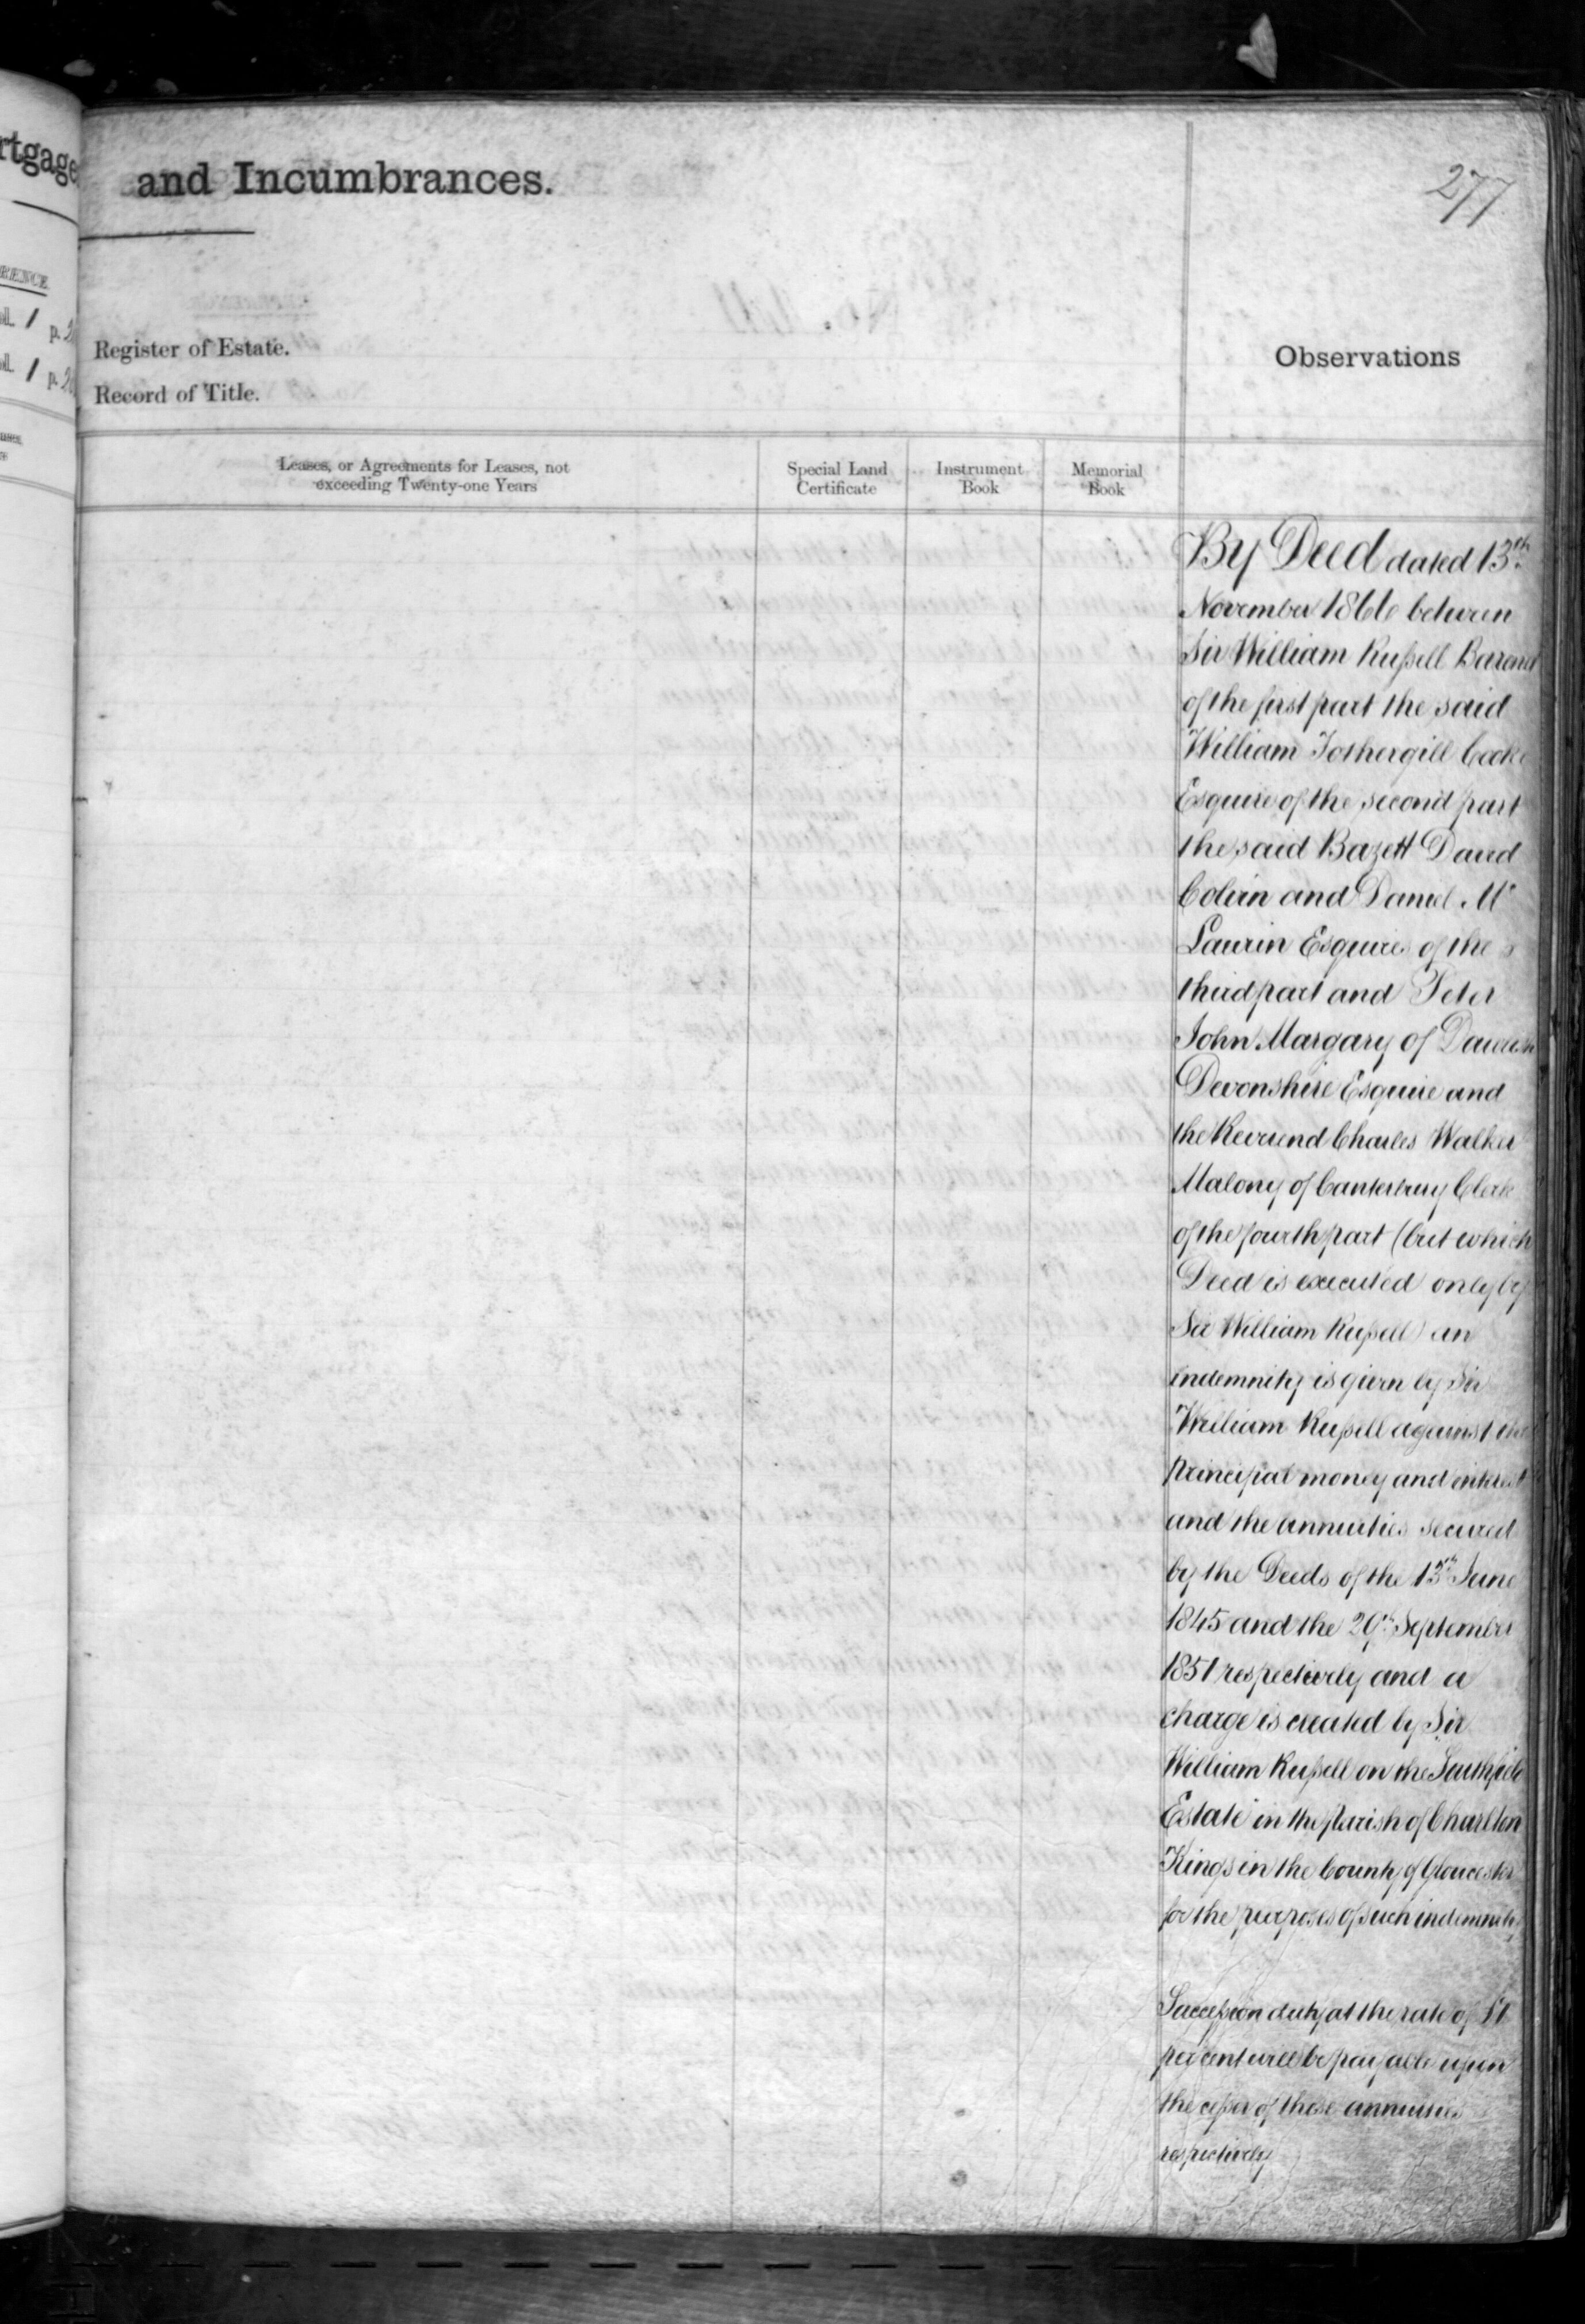 rtgage
and Incumbrances.
277
RENCE
1 p. 2
1 p. 2
Register of Estate.
Record of Title.
Observations
Leases, or Agreements for Leases, not
exceeding Twenty-one Years
Special Land
Certificate
Instrument
Book
Memorial
Book
By Deed dated 13th
November 1866 between
Sir William Russell Baronet
of the first part the said
William Fothergill Cooke
Esquire of the second part
the said Bazett David
Colvin and Daniel Mc
Laurin Esquires of the
third part and Peter
John Margary of Dawlish
Devonshire Esquire and
the Reverend Charles Walker
Malony of Canterbury Clerk
of the fourth part (but which
Deed is executed only by
Sir William Russell) an
indemnity is given by Sir
William Russell against the
principal money and interest
and the annuities secured
by the Deeds of the 13th June
1845 and the 29th September
1851 respectively and a
charge is created by Sir
William Russell on the Southfield
Estate in the parish of Charlton
Kings in the County of Gloucester
for the purposes of such indemnity
Succession duty at the rate of £1
per cent will be payable upon
the cesser of these annuities
respectively